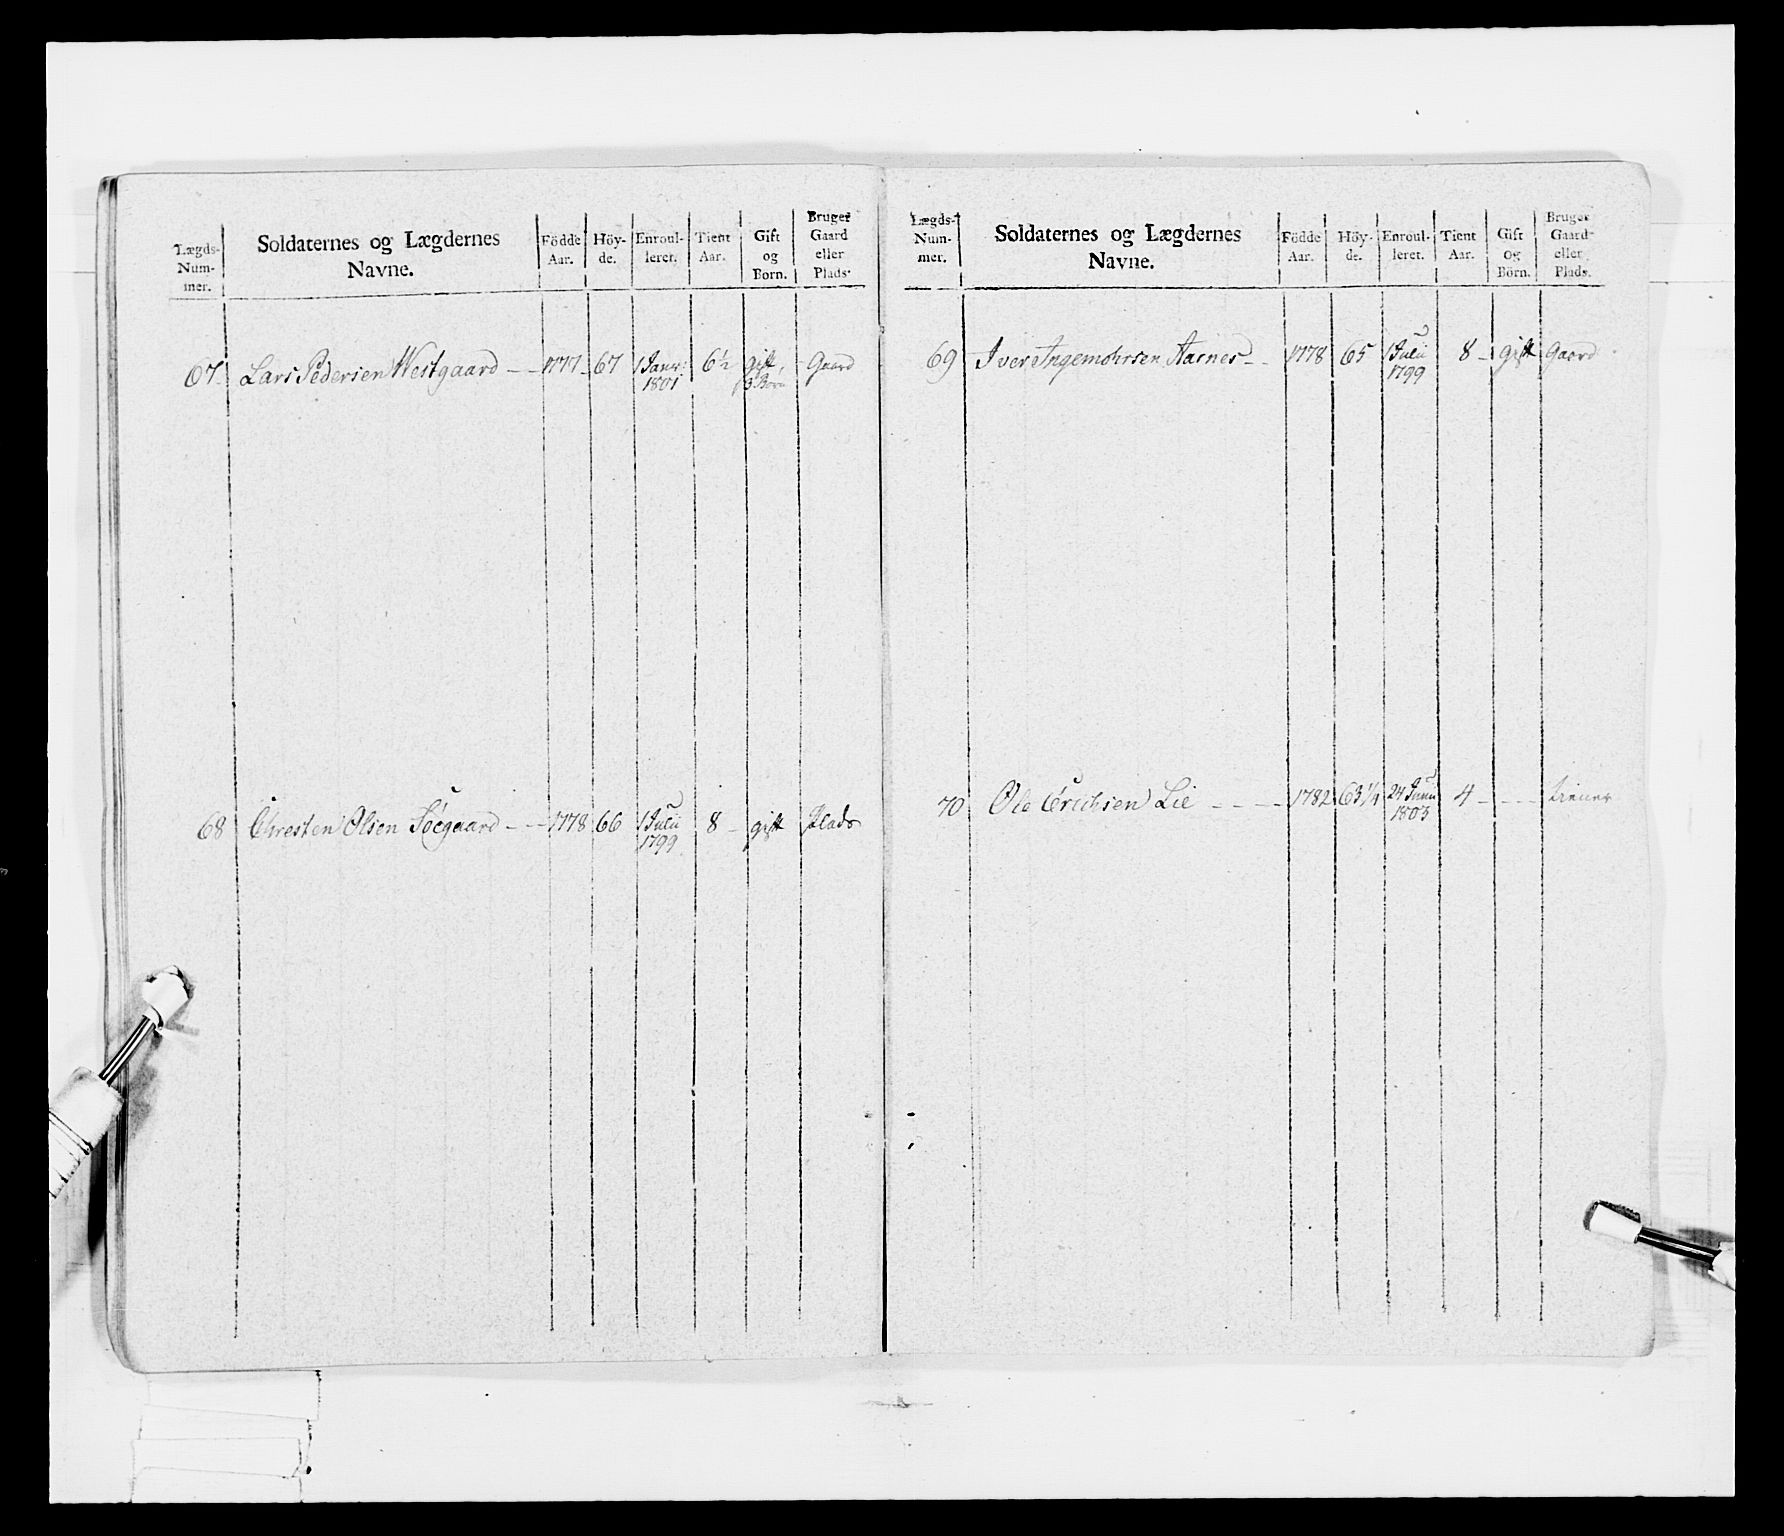 Lægds-Num-mer. Soldaternes og Lægdernes Navne. Födde Aar. Höy-de. Enroul-leret. Tient Aar. Gift og Börn. Bruger Gaard eller Plads.
67. Lars Pedersen Westgaard - - 1777 - 67 1 Janr: 1801 6½ gift, 3 Born - Gaard
68 Chresten Olsen Söegaard - - 1778 66 1 Julii 1799 8 - gift Plads
Lægds-Num-mer. Soldaternes og Lægdernes Navne. Födde Aar. Höy-de. Enroul-leret. Tient Aar. Gift og Börn. Bruger Gaard eller Plads.
69 Iver Ingemohrsen Aarnes - - 1778 65 1 Julii 1799 8 - gift Gaard
70 Ole Erichsen Lie - - - - 1782 63¼ 24 Junii 1803 4 - - - - tiener